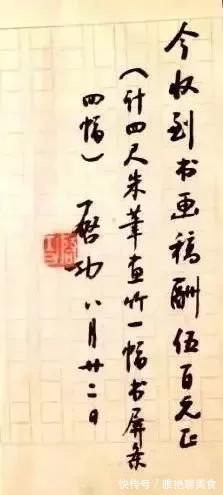 今收到书画稿酬伍百元正
（计四尺朱笔画竹一幅书屏条
四幅）
启功 八月廿二日
快传号 / 雅艳聊美食